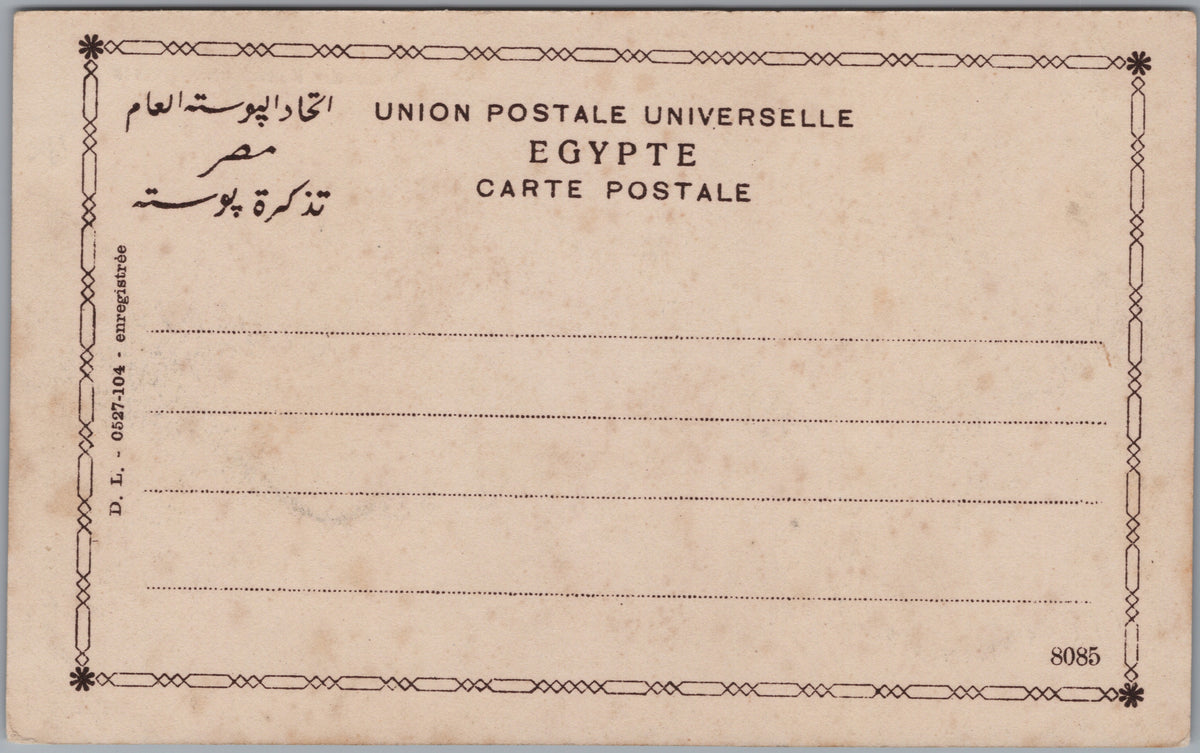 اتحاد البوسته العام
مصر
تذكرة بوسته
UNION POSTALE UNIVERSELLE
EGYPTE
CARTE POSTALE
D. L. - 0527-104 - enregistrée
8085